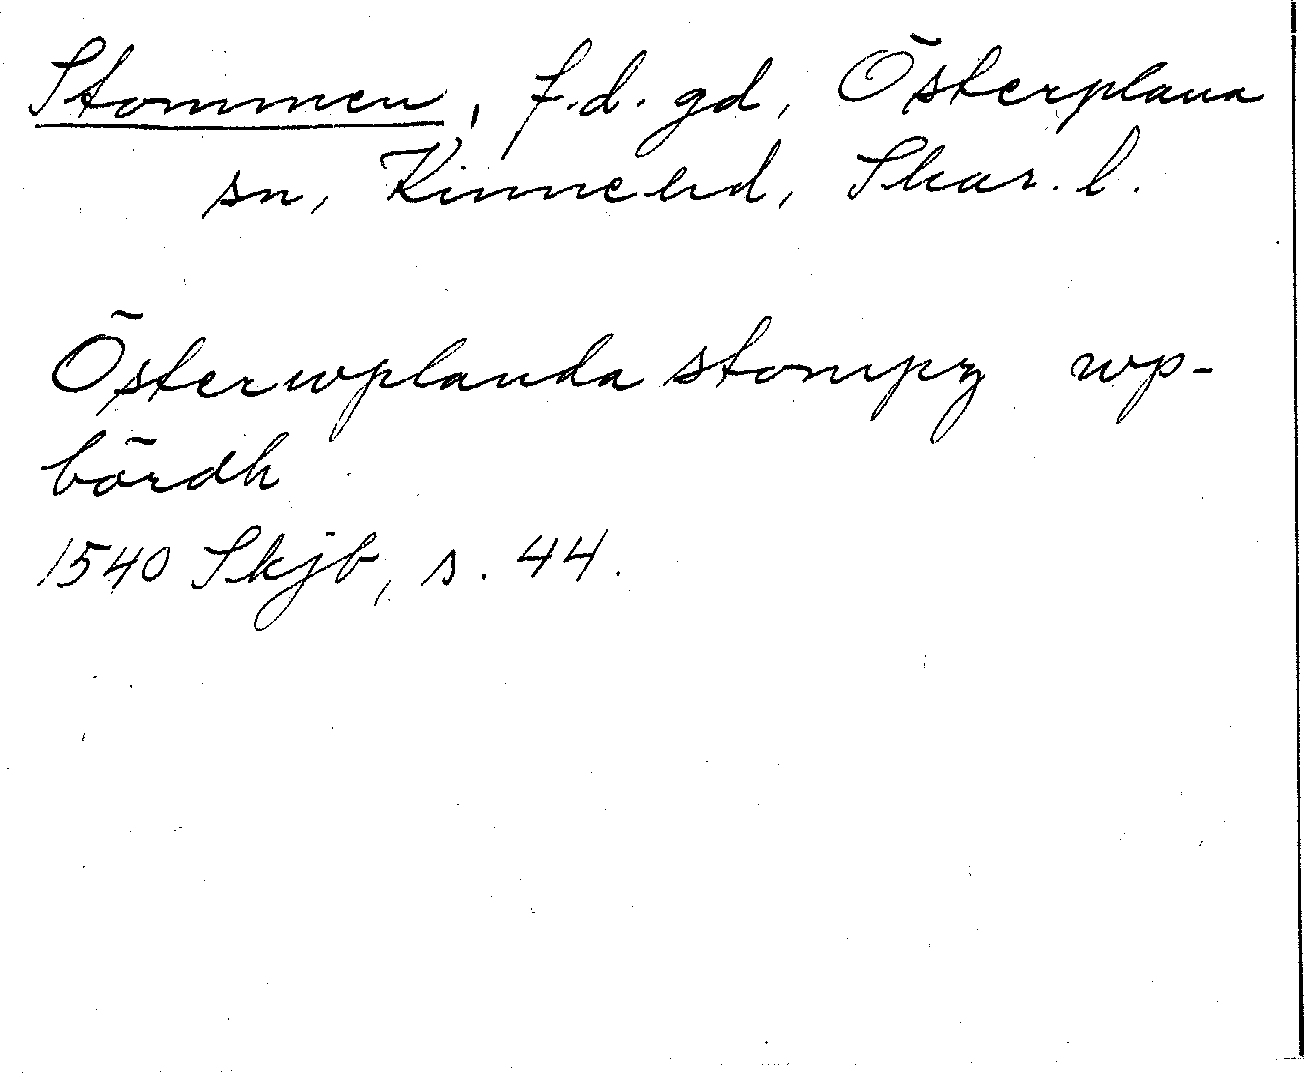 Stommen, f.d. gd, Österplana
sn, Kinne hd, Skar. l.
Österwplanda stompz wp-
bördh
1540 Skjb, s. 44.